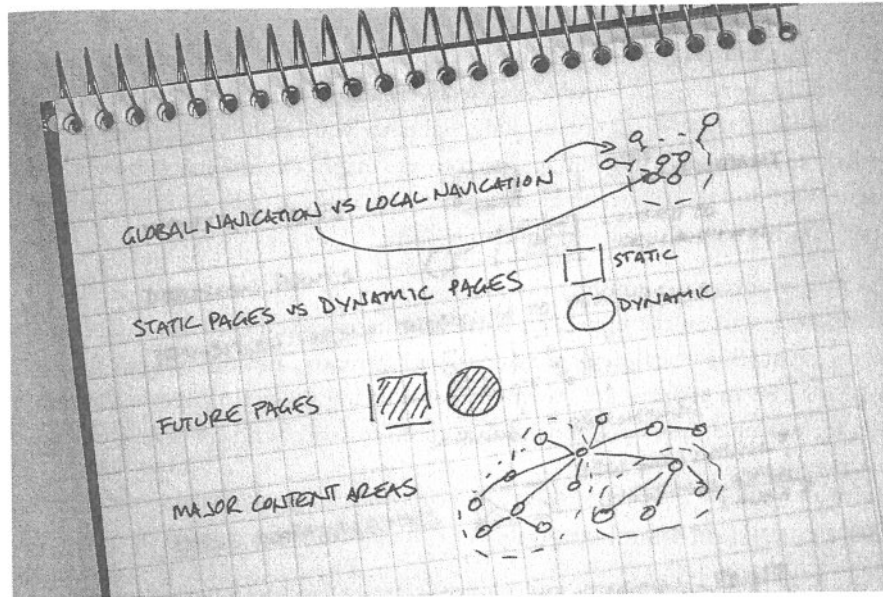 GLOBAL NAVIGATION VS LOCAL NAVIGATION
STATIC PAGES VS DYNAMIC PAGES
STATIC
DYNAMIC
FUTURE PAGES
MAJOR CONTENT AREAS